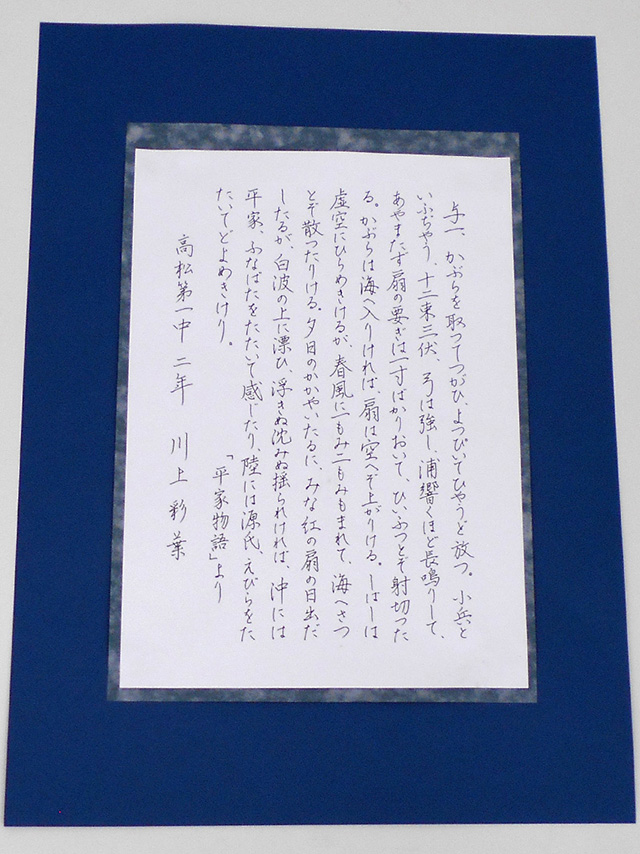 与一、かぶらを取つてつがひ、よつぴいてひやうど放つ。小兵と
いふぢやう、十二束三伏、弓は強し、浦響くほど長鳴りして、
あやまたず扇の要ぎは一寸ばかりおいて、ひいふつとぞ射切つた
る。かぶらは海へ入りければ、扇は空へぞ上がりける。しばしは
虚空にひらめきけるが、春風に一もみ二もみもまれて、海へさつ
とぞ散つたりける。夕日のかかやいたるに、みな紅の扇の日出だ
したるが、白波の上に漂ひ、浮きぬ沈みぬ揺られければ、沖には
平家、ふなばたをたたいて感じたり、陸には源氏、えびらをた
たいてどよめきけり。
「平家物語」より
高松第一中 二年 川上彩葉